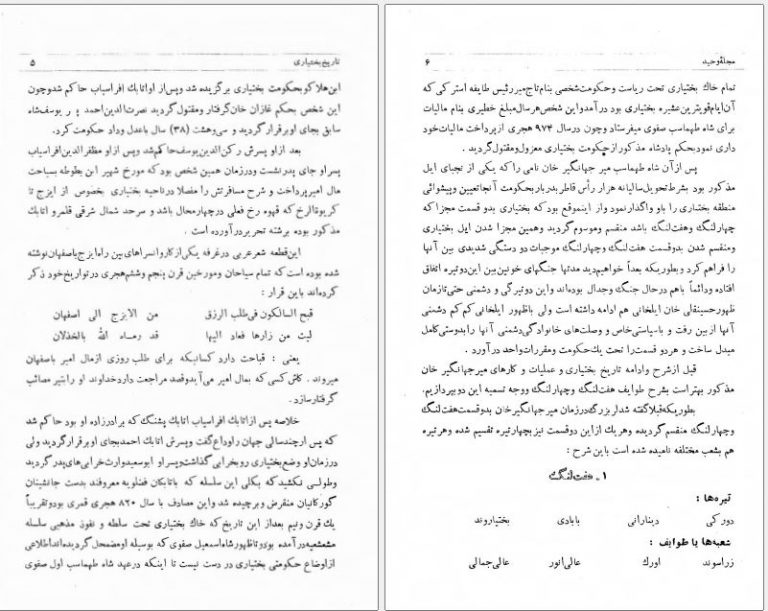 تاریخ بختیاری ۵
ابن هلاکو بحکومت بختیاری برگزیده شد و پس از او اتابك افراسیاب حاکم شد و چون
این شخص بحکم غازان خان گرفتار و مقتول گردید نصرت الدین احمد پر یوسف شاه
سابق بجای او برقرار گردید و سی و هشت (۳۸) سال باعدل و داد حکومت کرد.
بعد از او پسرش رکن الدین یوسف حاکم شد و پس از او مظفر الدین افراسیاب
پسر او جای پدر نشست و در زمان همین شخص بود که مورخ شهیر ابن بطوطه بسیاحت
مال امیر پرداخت و شرح مسافرتش را مفصلا در ناحیه بختیاری بخصوص از ایزج تا
کریوة الرخ که قهوه رخ فعلی در چهار محال باشد و سرحد شمال شرقی قلمرو اتابك
مذکور بوده برشته تحریر در آورده است .
این قطعه شعر عربی در غرفه یکی از کاروانسراهای بین راه ایزج باصفهان نوشته
شده بوده است که تمام سیاحان و مورخین قرن پنجم و ششم هجری در تواریخ خود ذکر
کرده اند باین قرار :
قبح السالکون فی طلب الرزق من الایزج الی اصفهان
لیت من زارها فعاد الیها قد رماه الله بالخذلان
یعنی : قباحت دارد کسانیکه برای طلب روزی از مال امیر باصفهان
میروند . کاش کسی که بمال امیر می آید و قصد مراجعت دارد خداوند او را بتیر مصائب
گرفتار سازد .
خلاصه پس از اتابك افراسیاب اتابك پشنگ که برادرزاده او بود حاکم شد
که پس از چند سالی جهان را وداع گفت و پسرش اتابك احمد بجای او برقرار گردید ولی
در زمان او وضع بختیاری رو بخرابی گذاشت و پسر او ابوسعید وارث خرابی های پدر گردید
وطولی نکشید که بکلی این سلسله که باتابکان فضلویه معروفند بدست جانشینان
گورکانیان منقرض و برچیده شد و این مصادف با سال ۸۲۰ هجری قمری بود و تقریباً
یك قرن و نیم بعد از این تاریخ که خاك بختیاری تحت سلطه و نفوذ مذهبی سلسله
مشعشعیه در آمده بود و تا ظهور شاه اسمعیل صفوی که بوسیله او مضمحل گردیده اند اطلاعی
از اوضاع حکومتی بختیاری در دست نیست تا اینکه در عهد شاه طهماسب اول صفوی
مجلهٔ وحید ۶
تمام خاك بختیاری تحت ریاست و حکومت شخصی بنام تاج میر رئیس طایفه استرکی که
آن ایام قویترین عشیره بختیاری بود در آمد و این شخص هر سال مبلغ خطیری بنام مالیات
برای شاه طهماسب صفوی میفرستاد و چون در سال ۹۷۴ هجری از پرداخت مالیات خود
داری نمود بحکم پادشاه مذکور از حکومت بختیاری معزول و مقتول گردید .
پس از آن شاه طهماسب میر جهانگیر خان نامی را که یکی از نجبای ایل
مذکور بود بشرط تحویل سالیانه هزار رأس قاطر بدربار بحکومت آنجا تعیین و پیشوائی
منطقه بختیاری را باو واگذار نمود و از اینموقع بود که بختیاری بدو قسمت مجزا که
چهار لنگ و هفت لنگ باشد منقسم و موسوم گردید و همین مجزا شدن ایل بختیاری
ومنقسم شدن بدو قسمت هفت لنگ و چهار لنگ موجبات دو دستگی شدیدی بین آنها
را فراهم کرد و بطوریکه بعداً خواهیم دید مدتها جنگهای خونین بین این دو تیره اتفاق
افتاده و دائماً باهم در حال جنگ و جدال بوده اند و این دو تیرگی و دشمنی حتی تا زمان
ظهور حسینقلی خان ایلخانی هم ادامه داشته است ولی باظهور ایلخانی کم کم دشمنی
آنها از بین رفت و با سیاستی خاص و وصلت های خانوادگی دشمنی آنها را بدوستی کامل
مبدل ساخت و هر دو قسمت را تحت یك حکومت و مقررات واحد در آورد .
قبل از شرح و ادامه تاریخ بختیاری و عملیات و کارهای میر جهانگیر خان
مذکور بهتر است بشرح طوایف هفت لنگ و چهار لنگ و وجه تسمیه این دو بپردازیم .
بطوریکه قبلا گفته شد ایل بزرگ در زمان میر جهانگیر خان بدو قسمت هفت لنگ
و چهار لنگ منقسم گردیده و هر یك از این دو قسمت نیز بچهار تیره تقسیم شده و هر تیره
هم بشعب مختلفه نامیده شده است باین شرح :
۱ - هفت لنگ
تیره ها :
دورکی دینارانی بابادی بختیاروند
شعبه ها یا طوایف :
زراسوند اورك عالی انور عالی جمالی